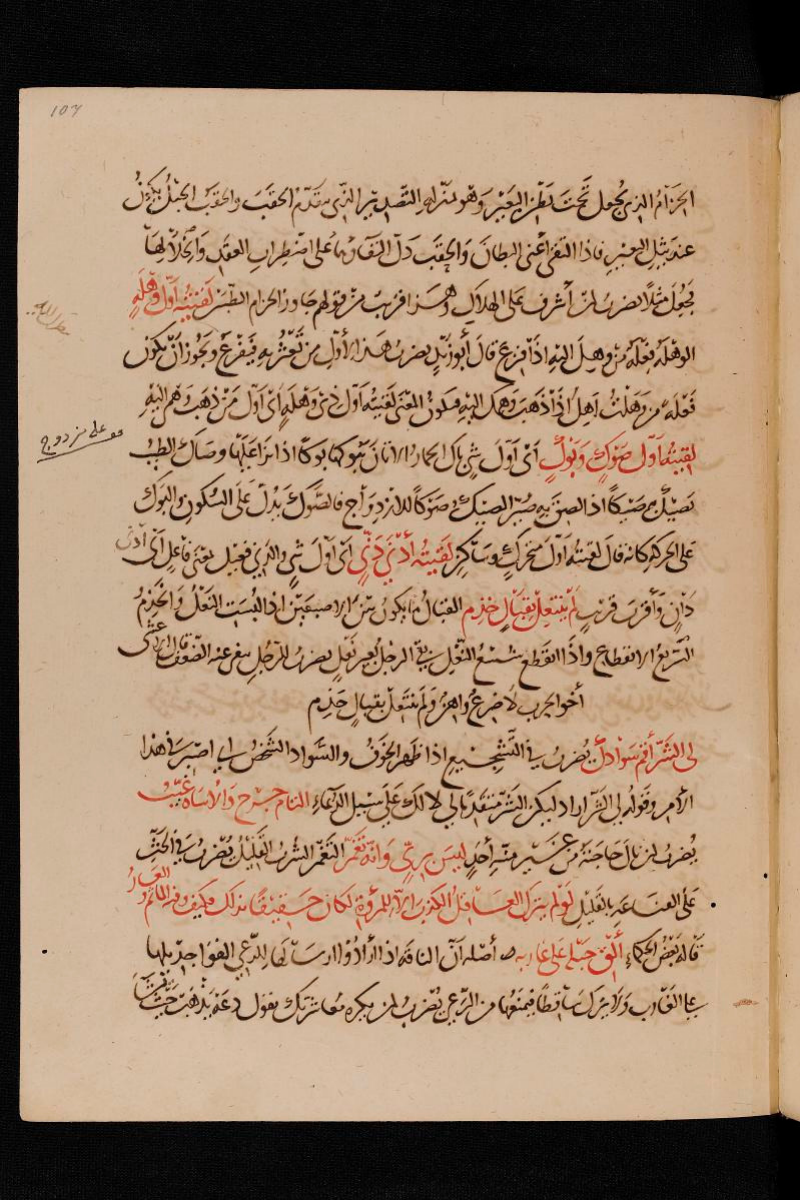 107
الحزام الذي يجعل تحت بطن البعير وهو بمنزلة التصدير الذي يتقدم الحقب والحقب الحبل يكون
عند ثيل البعير فاذا التقى اعنى البطان والحقب دل التقاؤهما على اضطراب العقد وانحلالها
فجعل مثلا يضرب لمن أشرف على الهلاك وهذا قريب من قولهم جاوز الحزام الطبيين لقيته أول وهلة
الوهلة فعلة من وهل اليه اذا فزع قال أبو زيد يضرب هذا الأول من تعثر به فيفزع ويجوز أن يكون
فعلة من وهلت أهل اذا ذهب وهمك اليه فيكون المعنى لقيته أول ذي وهلة أي أول من ذهب وهمي اليه
لقيته أول صوك وبوك أي أول شئ باك الحمار الاتان يبوكها بوكا اذا نزا عليها وصاك الطيب
يصيك به صيكا اذا لصق به صير الصيك صوكا للازدواج فالصوك يدل على السكون والبوك
على الحركة كانه قال لقيته أول متحرك وساكن لقيته أدنى دني أي أول شئ والدني فعيل بمعنى فاعل أي أدنى
دان وأقرب قريب لم ينتعل بقبال خذم القبال ما يكون بين الاصبعين اذا لبست النعل والخذم
السريع الانقطاع واذا انقطع شسع النعل بقي الرجل بغير نعل يضرب للرجل ينفى عنه الضعف قال الاعشى
أخو الحرب لا ضرع واهن ولم ينتعل بقبال خذم
لى الشر أقم سوادك يضرب في التشجيع اذا ظهر الخوف والسواد الشخص اي اصبر في هذا
الامر وقوله لى الشر اراد ليكن الشر منقدا لي لا لك على سبيل الدعاء
يضرب لمن نال حاجته من غير منة أحد ليس بري وانه تغمر التغمر الشرب القليل يضرب في الحث
على القناعة بالقليل لو لم يترك العاقل الكذب الا للمروة لكان حقيقا بذلك فكيف وفيه المأثم والعار
قاله بعض الحكماء ألق حبله على غاربه أصله أن الناقة اذا أرادوا ارسالها للرعي القوا جديلها
على الغارب ولا يترك ساقطا فيمنعها من الرعي يضرب لمن يكره معاشرتك يقول دعه يذهب حيث يشاء